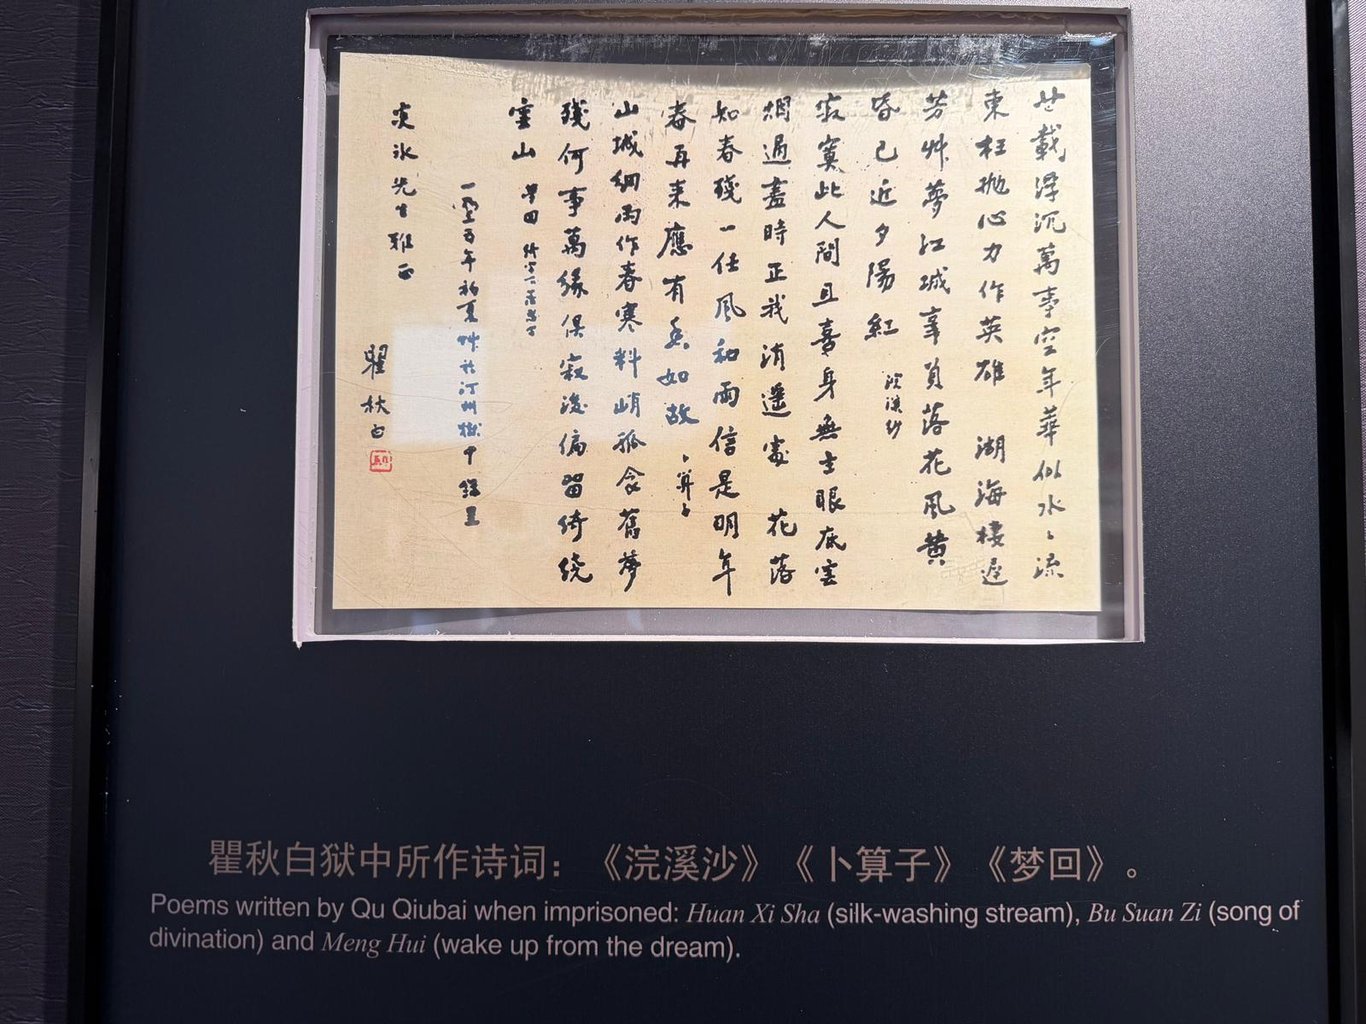 廿載浮沉萬事空年華似水、流
東枉抛心力作英雄 湖海棲遲
芳艸夢江城辜負落花風黄
昏已近夕陽紅 浣溪紗
寂寞此人間且喜身無主眼底雲
烟過盡時正我逍遥處 花落
知春殘一任風和雨信是明年
春再来應有香如故 卜算子
山城細雨作春寒料峭孤衾舊夢
殘何事萬緣俱寂後偏留綺繞
雲山 夢回
一九三五年初夏作於汀州獄中錄呈
炎冰先生雅正
瞿秋白
瞿秋白狱中所作诗词：《浣溪沙》《卜算子》《梦回》。
Poems written by Qu Qiubai when imprisoned: Huan Xi Sha (silk-washing stream), Bu Suan Zi (song of
divination) and Meng Hui (wake up from the dream).